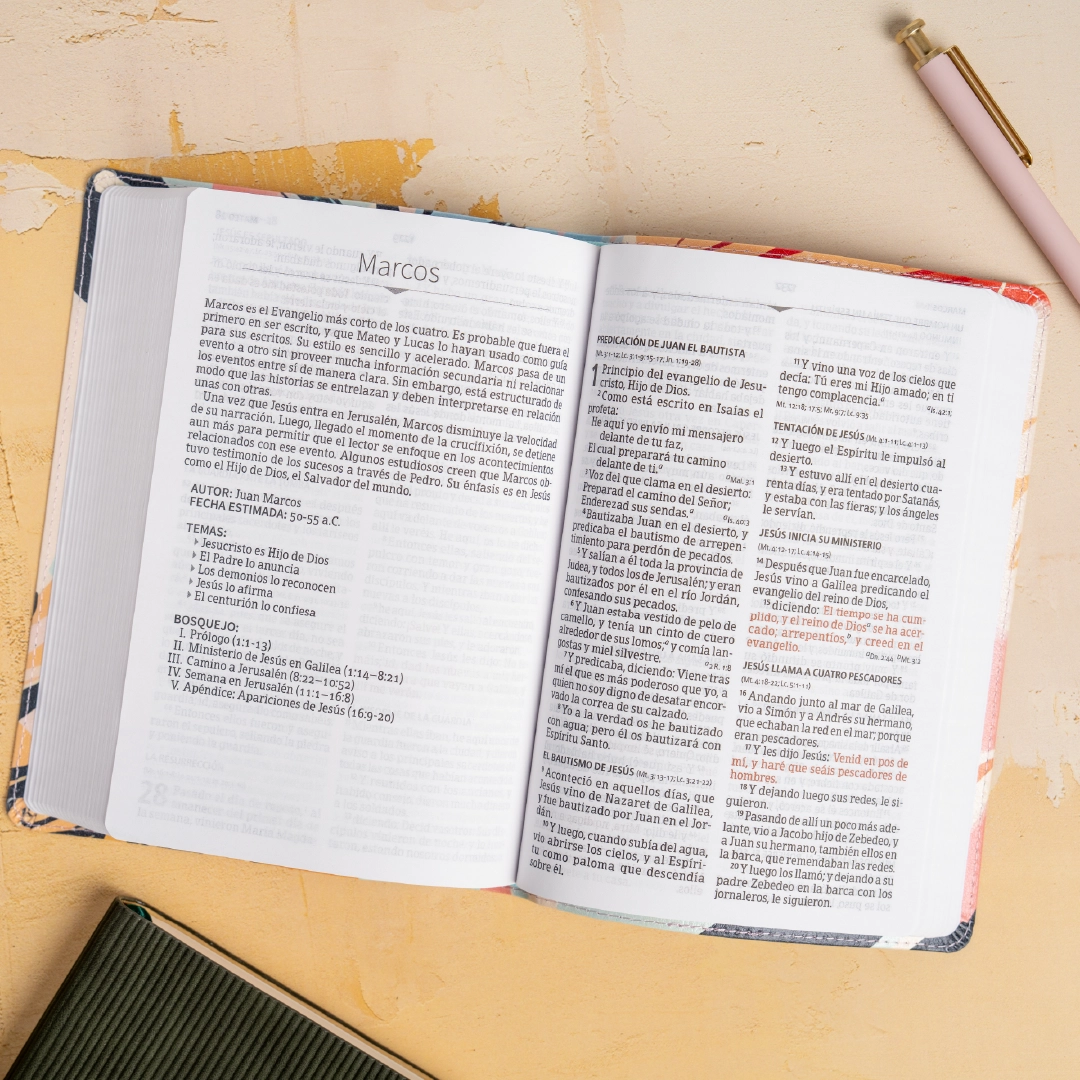 Marcos
Marcos es el Evangelio más corto de los cuatro. Es probable que fuera el
primero en ser escrito, y que Mateo y Lucas lo hayan usado como guía
para sus escritos. Su estilo es sencillo y acelerado. Marcos pasa de un
evento a otro sin proveer mucha información secundaria ni relacionar
los eventos entre sí de manera clara. Sin embargo, está estructurado de
modo que las historias se entrelazan y deben interpretarse en relación
unas con otras.
Una vez que Jesús entra en Jerusalén, Marcos disminuye la velocidad
de su narración. Luego, llegado el momento de la crucifixión, se detiene
aun más para permitir que el lector se enfoque en los acontecimientos
relacionados con ese evento. Algunos estudiosos creen que Marcos ob-
tuvo testimonio de los sucesos a través de Pedro. Su énfasis es en Jesús
como el Hijo de Dios, el Salvador del mundo.
AUTOR: Juan Marcos
FECHA ESTIMADA: 50-55 a.C.
TEMAS:
Jesucristo es Hijo de Dios
El Padre lo anuncia
Los demonios lo reconocen
Jesús lo afirma
El centurión lo confiesa
BOSQUEJO:
I. Prólogo (1:1-13)
II. Ministerio de Jesús en Galilea (1:14–8:21)
III. Camino a Jerusalén (8:22–10:52)
IV. Semana en Jerusalén (11:1–16:8)
V. Apéndice: Apariciones de Jesús (16:9-20)
PREDICACIÓN DE JUAN EL BAUTISTA
(Mt. 3:1-12; Lc. 3:1-9:15-17; Jn. 1:19-28)
1 Principio del evangelio de Jesu-
cristo, Hijo de Dios.
2 Como está escrito en Isaías el
profeta:
He aquí yo envío mi mensajero
delante de tu faz,
El cual preparará tu camino
delante de ti.a
a Mal. 3:1
3 Voz del que clama en el desierto:
Preparad el camino del Señor;
Enderezad sus sendas.a
a Is. 40:3
4 Bautizaba Juan en el desierto, y
predicaba el bautismo de arrepen-
timiento para perdón de pecados.
5 Y salían a él toda la provincia de
Judea, y todos los de Jerusalén; y eran
bautizados por él en el río Jordán,
confesando sus pecados.
6 Y Juan estaba vestido de pelo de
camello, y tenía un cinto de cuero
alrededor de sus lomos;a y comía lan-
gostas y miel silvestre.
a 2 R. 1:8
7 Y predicaba, diciendo: Viene tras
mí el que es más poderoso que yo, a
quien no soy digno de desatar encor-
vado la correa de su calzado.
8 Yo a la verdad os he bautizado
con agua; pero él os bautizará con
Espíritu Santo.
EL BAUTISMO DE JESÚS (Mt. 3:13-17; Lc. 3:21-22)
9 Aconteció en aquellos días, que
Jesús vino de Nazaret de Galilea,
y fue bautizado por Juan en el Jor-
dán.
10 Y luego, cuando subía del agua,
vio abrirse los cielos, y al Espíri-
tu como paloma que descendía
sobre él.
11 Y vino una voz de los cielos que
decía: Tú eres mi Hijo amado; en ti
tengo complacencia.a
a Is. 42:1;
Mt. 12:18; 17:5; Mr. 9:7; Lc. 9:35
TENTACIÓN DE JESÚS (Mt. 4:1-11; Lc. 4:1-13)
12 Y luego el Espíritu le impulsó al
desierto.
13 Y estuvo allí en el desierto cua-
renta días, y era tentado por Satanás,
y estaba con las fieras; y los ángeles
le servían.
JESÚS INICIA SU MINISTERIO
(Mt. 4:12-17; Lc. 4:14-15)
14 Después que Juan fue encarcelado,
Jesús vino a Galilea predicando el
evangelio del reino de Dios,
15 diciendo: El tiempo se ha cum-
plido, y el reino de Diosa se ha acer-
cado; arrepentíos,b y creed en el
evangelio.
a Dn. 2:44 b Mt. 3:2
JESÚS LLAMA A CUATRO PESCADORES
(Mt. 4:18-22; Lc. 5:1-11)
16 Andando junto al mar de Galilea,
vio a Simón y a Andrés su hermano,
que echaban la red en el mar; porque
eran pescadores.
17 Y les dijo Jesús: Venid en pos de
mí, y haré que seáis pescadores de
hombres.
18 Y dejando luego sus redes, le si-
guieron.
19 Pasando de allí un poco más ade-
lante, vio a Jacobo hijo de Zebedeo, y
a Juan su hermano, también ellos en
la barca, que remendaban las redes.
20 Y luego los llamó; y dejando a su
padre Zebedeo en la barca con los
jornaleros, le siguieron.